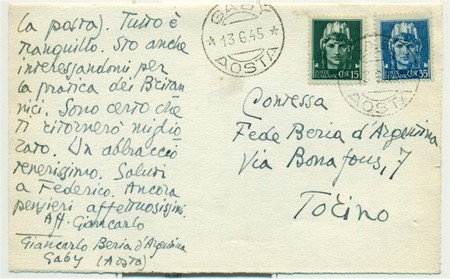 la posta). Tutto è
tranquillo. Sto anche
interessandomi per
la pratica dei Britan
nici. Sono certo che
ti ritornerò miglio
rato. Un abbraccio
tenerissimo. Saluti
a Federico. Ancora
pensieri affettuosissimi.
Aff. Giancarlo
Giancarlo Beria d'Argentina
Gaby (Aosta)
GABY
* 13 6 45 *
AOSTA
POSTE ITALIANE
CENT 15
POSTE ITALIANE
CENT 35
AOSTA
Contessa
Fede Beria d'Argentina
Via Bonafous, 7
Torino